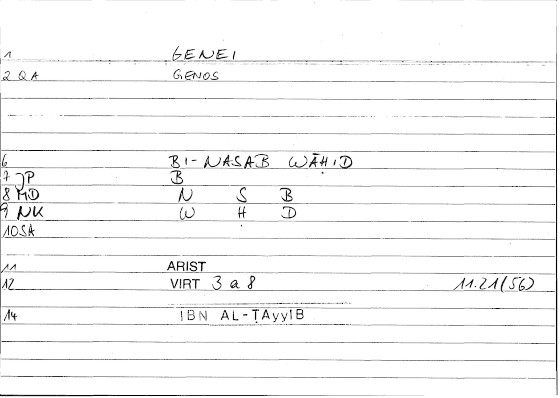 1 GENEI
2 QA GENOS
6 BI-NASAB WĀḤID
7 JP B
8 MD N S B
9 NK W Ḥ D
10 SA
11 ARIST
12 VIRT 3 a 8 11.21(56)
14 IBN AL-ṬAyyIB